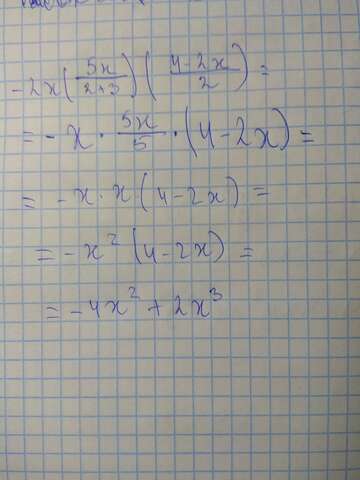 -2x(5x/(2+3))((4-2x)/2) =
= -x · 5x/5 · (4-2x) =
= -x · x(4-2x) =
= -x²(4-2x) =
= -4x² + 2x³